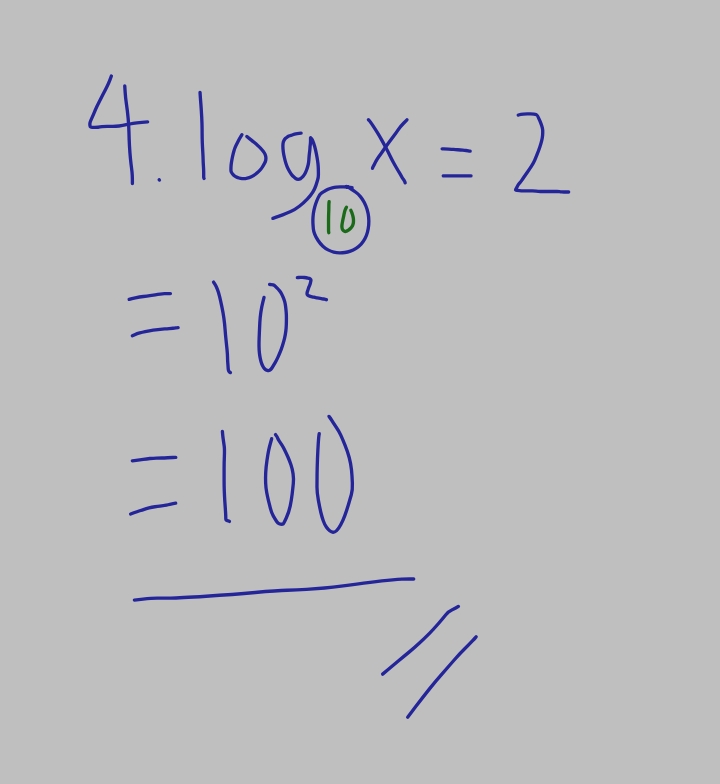 4. log₁₀ x = 2
= 10²
= 100